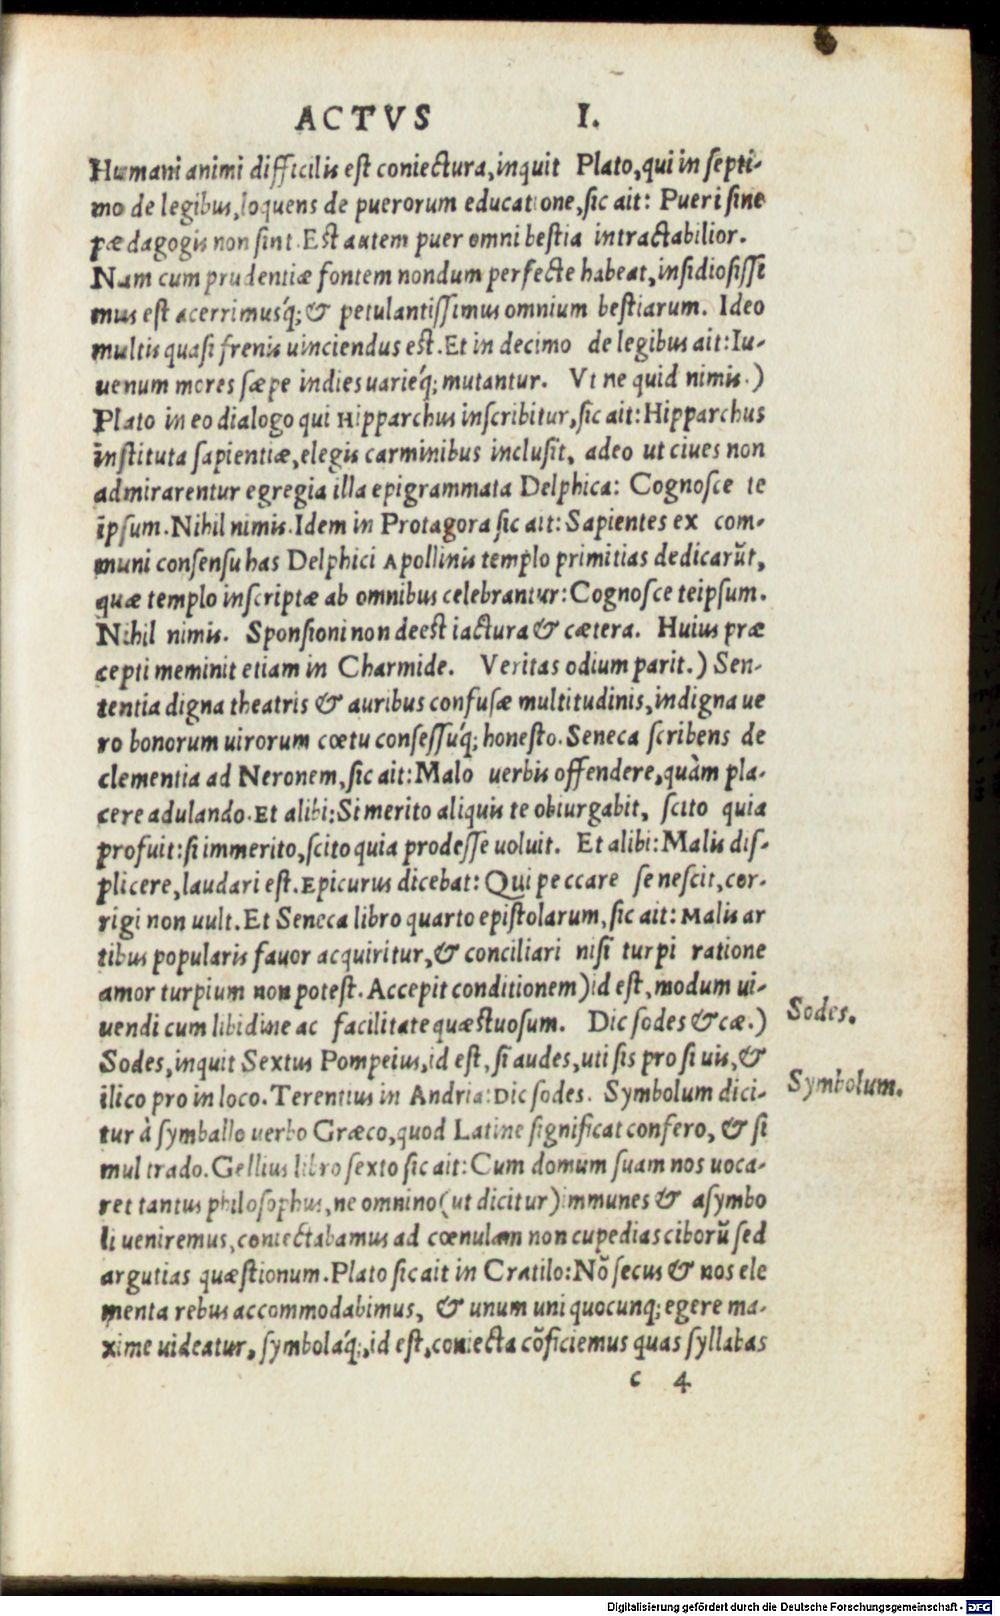 ACTVS I.
Humani animi difficilis est coniectura, inquit Plato, qui in septi-
mo de legibus, loquens de puerorum educatione, sic ait: Pueri sine
pædagogis non sint. Est autem puer omni bestia intractabilior.
Nam cum prudentiæ fontem nondum perfecte habeat, insidiosissi
mus est acerrimusq́; & petulantissimus omnium bestiarum. Ideo
multis quasi frenis uinciendus est. Et in decimo de legibus ait: Iu-
uenum mores sæpe indies uarieq́; mutantur. Vt ne quid nimis.)
Plato in eo dialogo qui Hipparchus inscribitur, sic ait: Hipparchus
instituta sapientiæ, elegis carminibus inclusit, adeo ut ciues non
admirarentur egregia illa epigrammata Delphica: Cognosce te
ipsum. Nihil nimis. Idem in Protagora sic ait: Sapientes ex com-
muni consensu has Delphici Apollinis templo primitias dedicarũt,
quæ templo inscriptæ ab omnibus celebrantur: Cognosce teipsum.
Nihil nimis. Sponsioni non deest iactura & cætera. Huius præ
cepti meminit etiam in Charmide. Veritas odium parit.) Sen-
tentia digna theatris & auribus confusæ multitudinis, indigna ue
ro bonorum uirorum cœtu consessuq́; honesto. Seneca scribens de
clementia ad Neronem, sic ait: Malo uerbis offendere, quàm pla-
cere adulando. Et alibi: Si merito aliquis te obiurgabit, scito quia
profuit: si immerito, scito quia prodesse uoluit. Et alibi: Malis dis-
plicere, laudari est. Epicurus dicebat: Qui peccare se nescit, cor-
rigi non uult. Et Seneca libro quarto epistolarum, sic ait: Malis ar
tibus popularis fauor acquiritur, & conciliari nisi turpi ratione
amor turpium non potest. Accepit conditionem) id est, modum ui-
uendi cum libidine ac facilitate quæstuosum. Dic sodes & cæ.)
Sodes.
Sodes, inquit Sextus Pompeius, id est, si audes, uti sis pro si uis, &
ilico pro in loco. Terentius in Andria: Dic sodes. Symbolum dici-
Symbolum.
tur à symballo uerbo Græco, quod Latine significat confero, & si
mul trado. Gellius libro sexto sic ait: Cum domum suam nos uoca-
ret tantus philosophus, ne omnino (ut dicitur) immunes & asymbo
li ueniremus, coniectabamus ad cœnulam non cupedias ciborũ sed
argutias quæstionum. Plato sic ait in Cratilo: Nõ secus & nos ele
menta rebus accommodabimus, & unum uni quocunq; egere ma-
xime uideatur, symbolaq́;, id est, coniecta cõficiemus quas syllabas
c 4
Digitalisierung gefördert durch die Deutsche Forschungsgemeinschaft - DFG